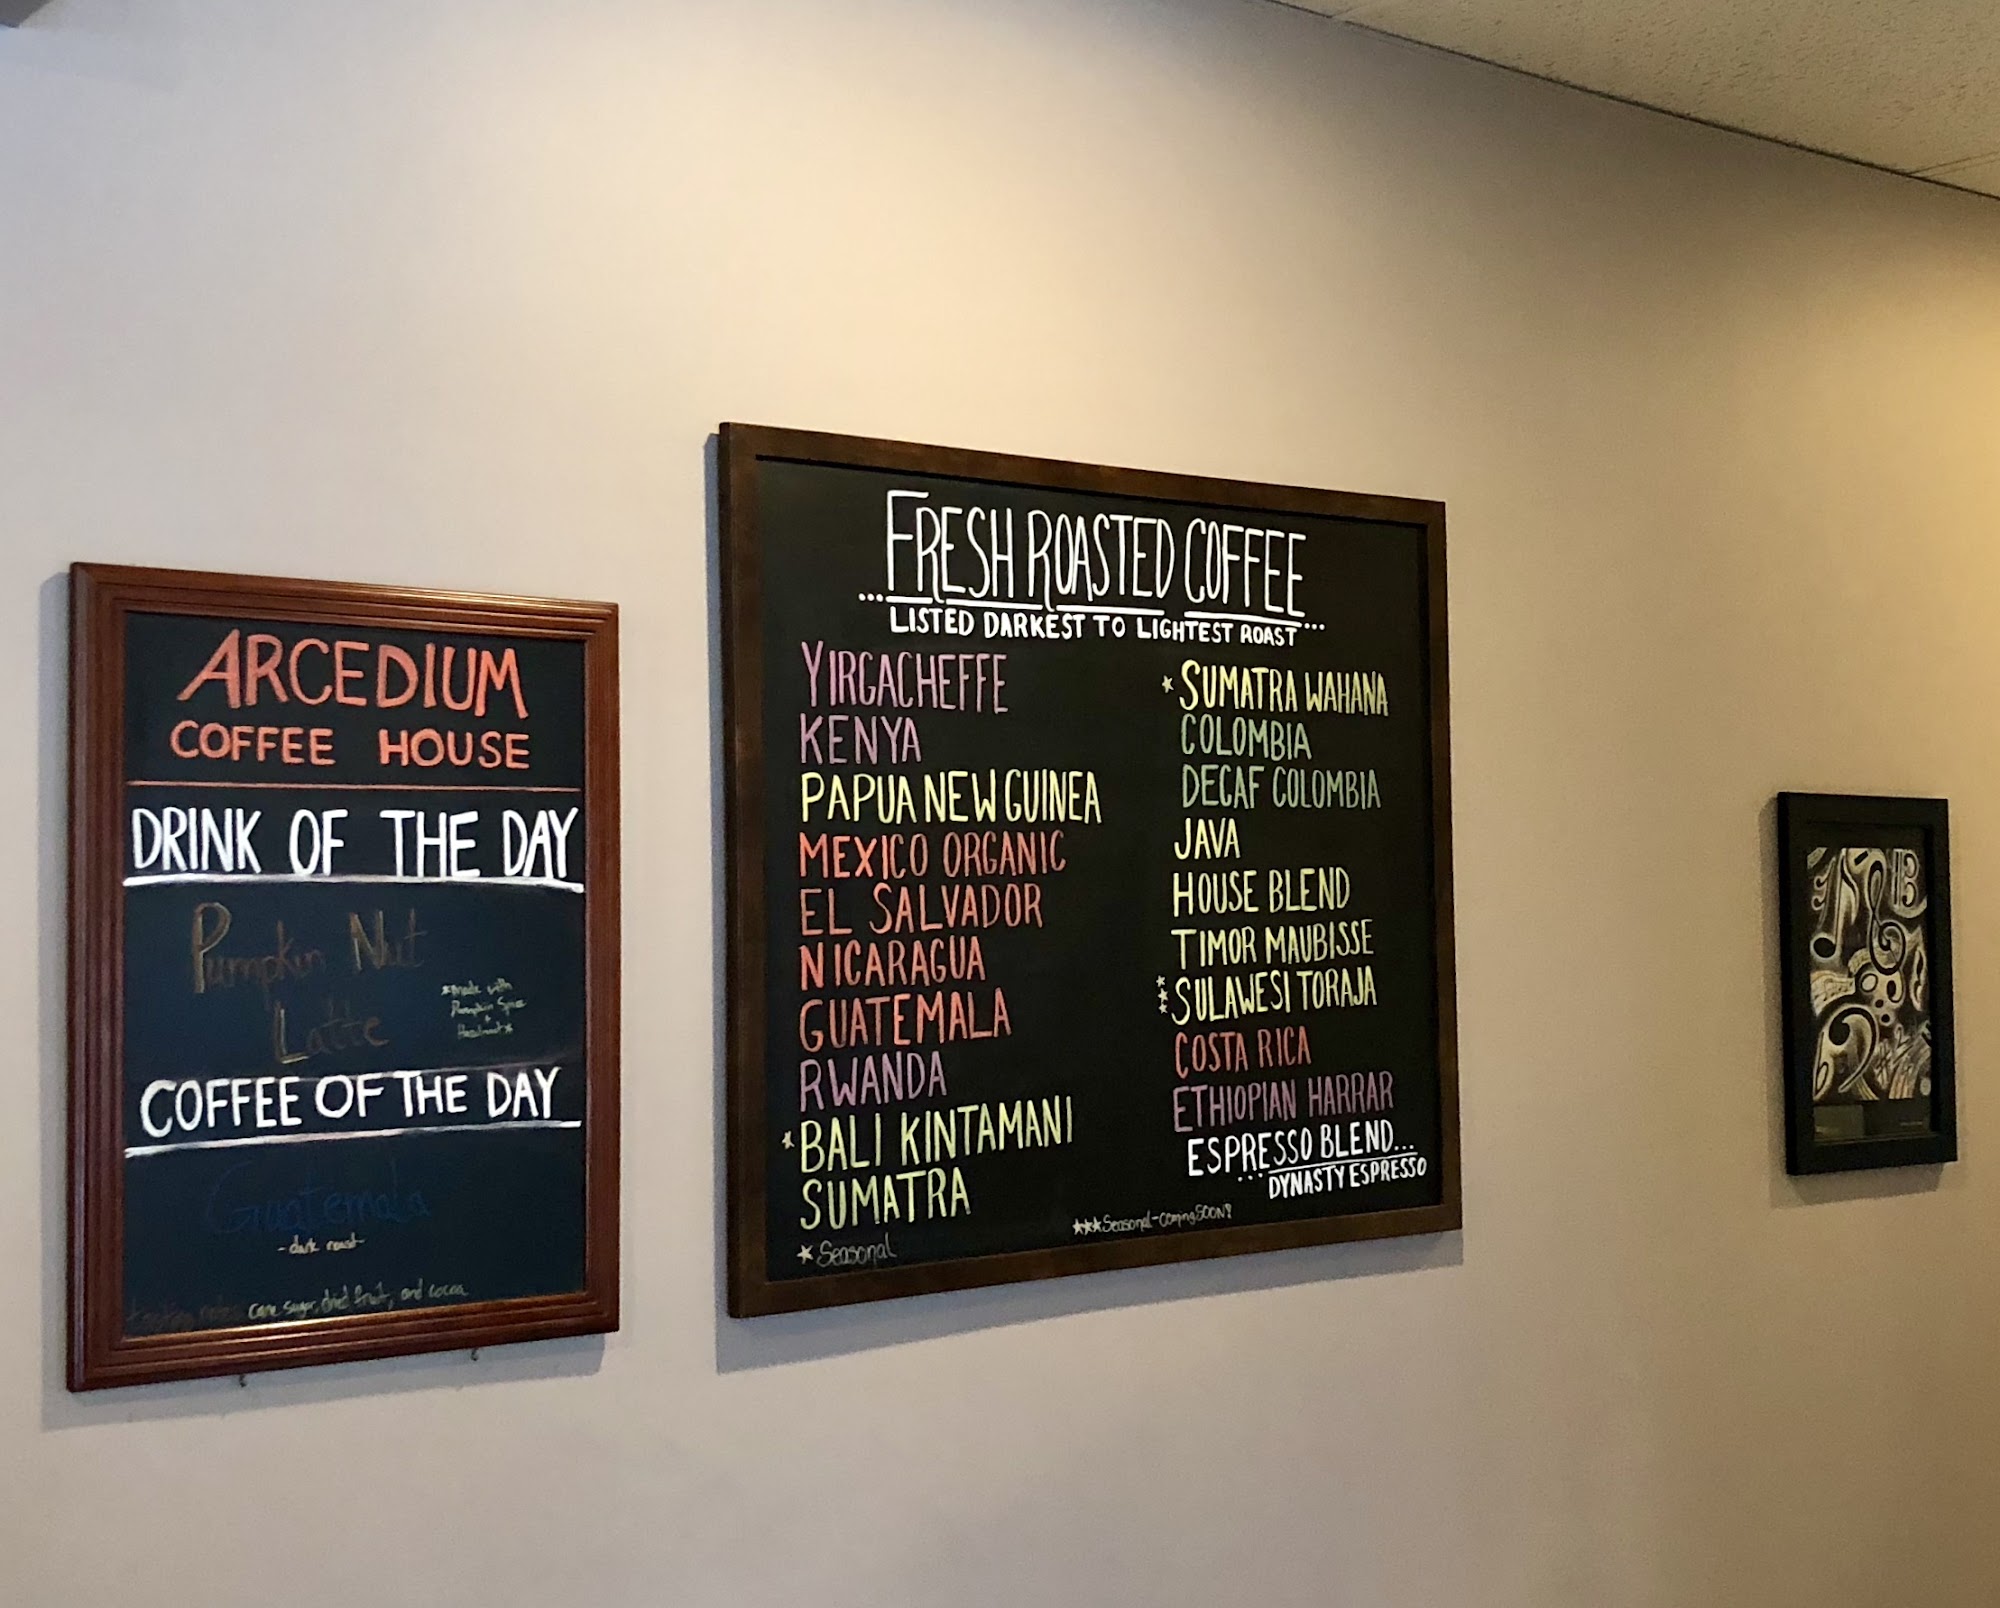 ARCEDIUM
COFFEE HOUSE
DRINK OF THE DAY
Pumpkin Nut
Latte
*made with
Pumpkin Spice
+
Hazelnut*
COFFEE OF THE DAY
Guatemala
-dark roast-
tasting notes: cane sugar, dried fruit, and cocoa
FRESH ROASTED COFFEE
...LISTED DARKEST TO LIGHTEST ROAST...
YIRGACHEFFE
KENYA
PAPUA NEW GUINEA
MEXICO ORGANIC
EL SALVADOR
NICARAGUA
GUATEMALA
RWANDA
*BALI KINTAMANI
SUMATRA
*Seasonal
*SUMATRA WAHANA
COLOMBIA
DECAF COLOMBIA
JAVA
HOUSE BLEND
TIMOR MAUBISSE
***SULAWESI TORAJA
COSTA RICA
ETHIOPIAN HARRAR
ESPRESSO BLEND...
...DYNASTY ESPRESSO
***Seasonal-coming SOON!